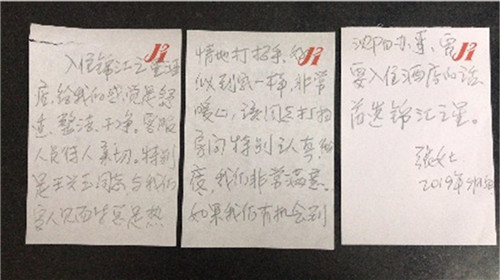 入住锦江之星酒
店，给我的感觉是舒
适、整洁、干净。客服
人员待人亲切。特别
是 同志与我们
客人见面时总是热
情地打招呼，
似到家一样，非常
暖心，该同志打扫
房间特别认真
，我们非常满意。
如果我们有机会到
沈阳办事，需
要入住酒店的话，
首选锦江之星。
张女士
2019年